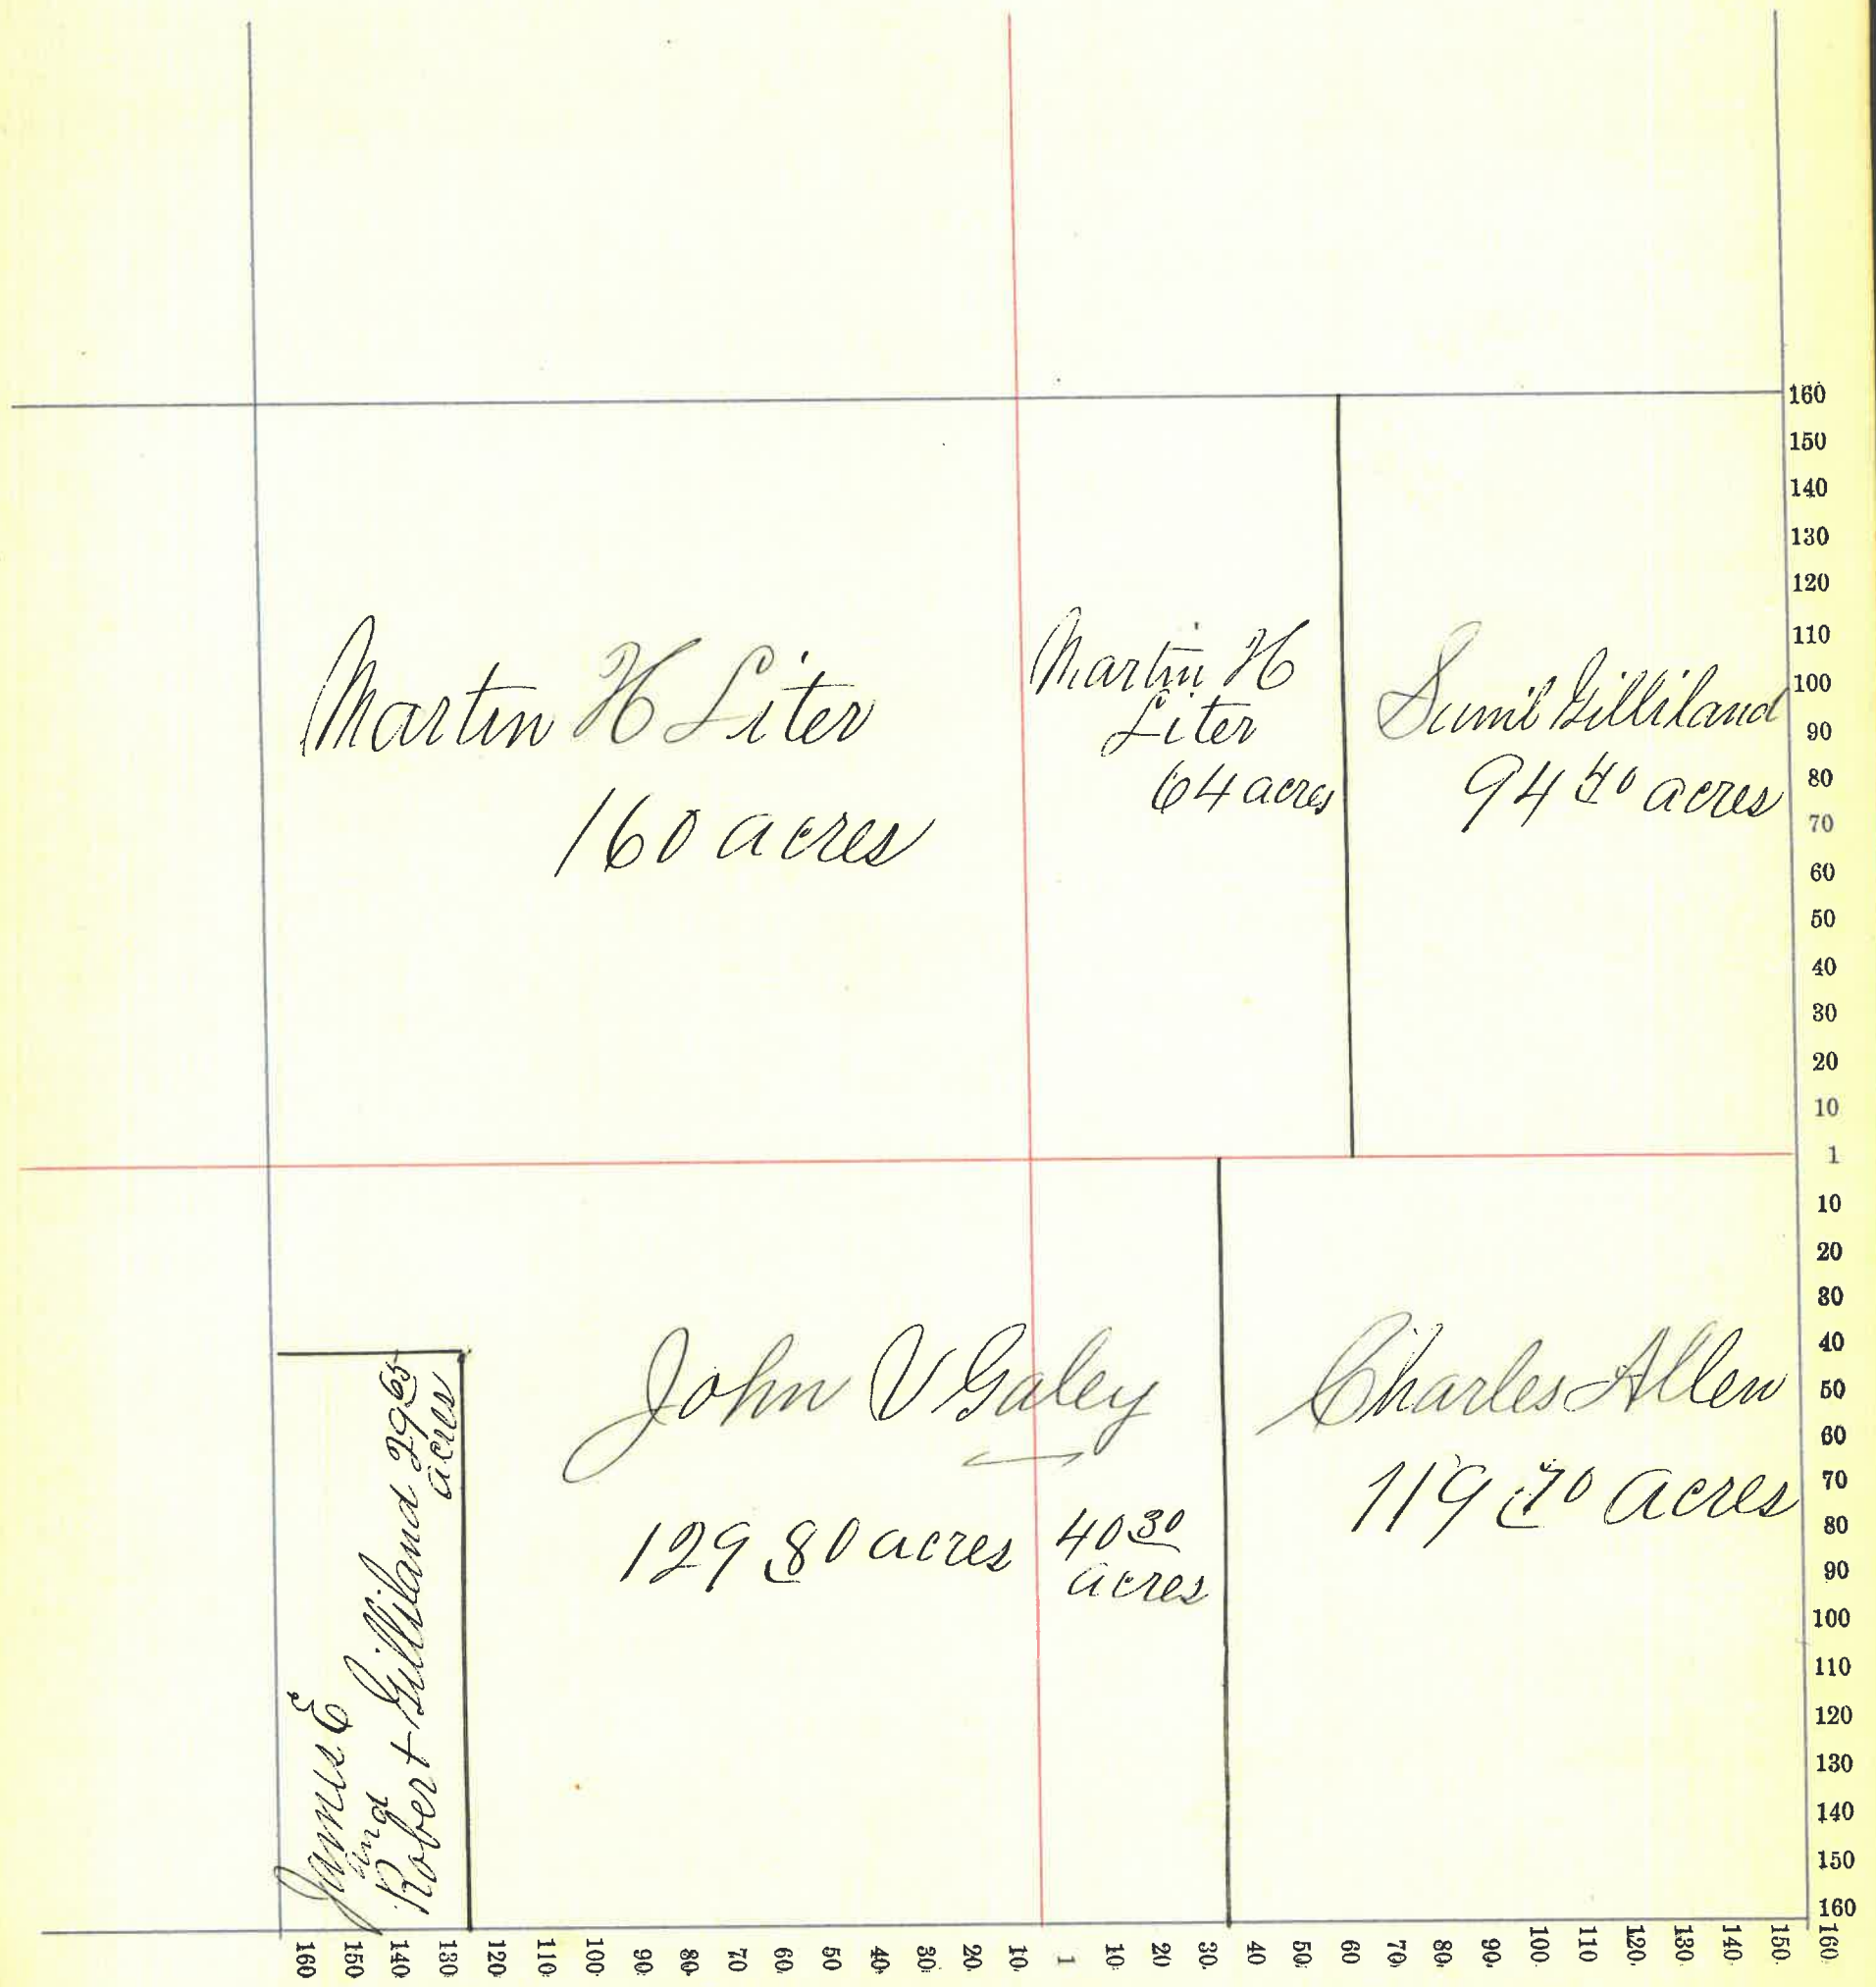 Martin H Liter
160 acres
Martin H
Liter
64 acres
Saml Gilliland
94 40 acres
John V Galey
129 80 acres
40 30
acres
Charles Allen
119 70 acres
James E
and
Robert Gilliland 29 65
acres
160
150
140
130
120
110
100
90
80
70
60
50
40
30
20
10
1
10
20
30
40
50
60
70
80
90
100
110
120
130
140
150
160
160 150 140 130 120 110 100 90 80 70 60 50 40 30 20 10 1 10 20 30 40 50 60 70 80 90 100 110 120 130 140 150 160